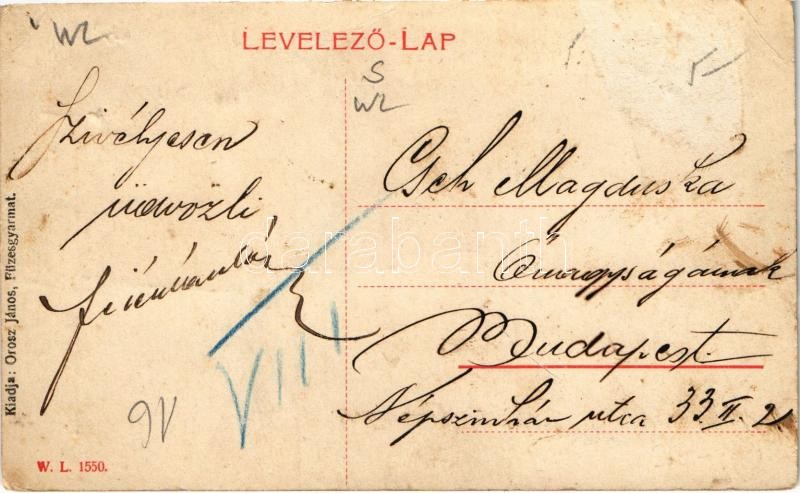 WL
LEVELEZŐ-LAP
S
WL
5-
Szivélyesen
üdvözli
Cseh Magduska
Őnagyságának
Budapest.
Népszinház utca 33 II. 2.
VIII
91
Kiadja: Orosz János, Füzesgyarmat.
W. L. 1550.
darabanth